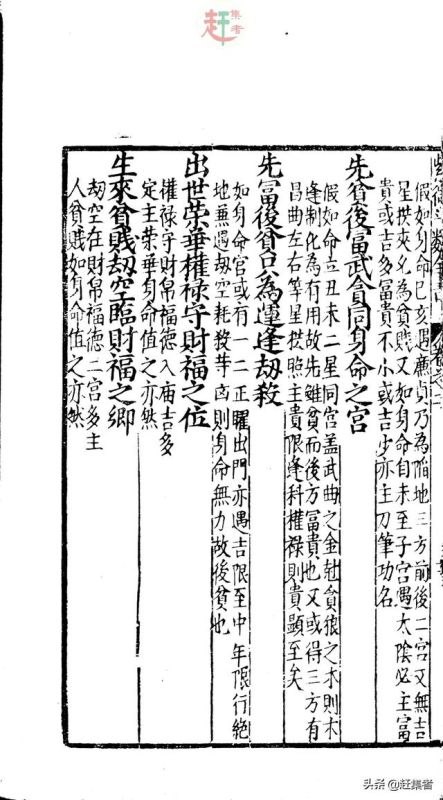 赶集者
假如身命巳亥遇廉貞乃為陷地三方前後二宮又無吉
星拱夾名為貧賤又如身命自未至子宮遇太陰必主富
貴或吉多富貴不小或吉少亦主刀筆功名
先貧後富武貪同身命之宮
假如命立丑未二星同宮盖武曲之金尅貪狼之木則木
逢制化為有用故先雖貧而後方冨貴也又或得三方有
昌曲左右等星拱照主貴限逢科權祿則貴顯至矣
先冨後貧只為運逢劫殺
如身命宮或有一二正曜出門亦遇吉限至中年限行絶
地無遇劫空耗殺等凶則身命無力故後貧也
出世荣華權祿守財福之位
權祿守財帛福德入庙吉多
定主荣華身命值之亦然
生來貧賤劫空臨財福之鄉
劫空在財帛福德二宮多主
人貧賤如身命值之亦然
头条@赶集者